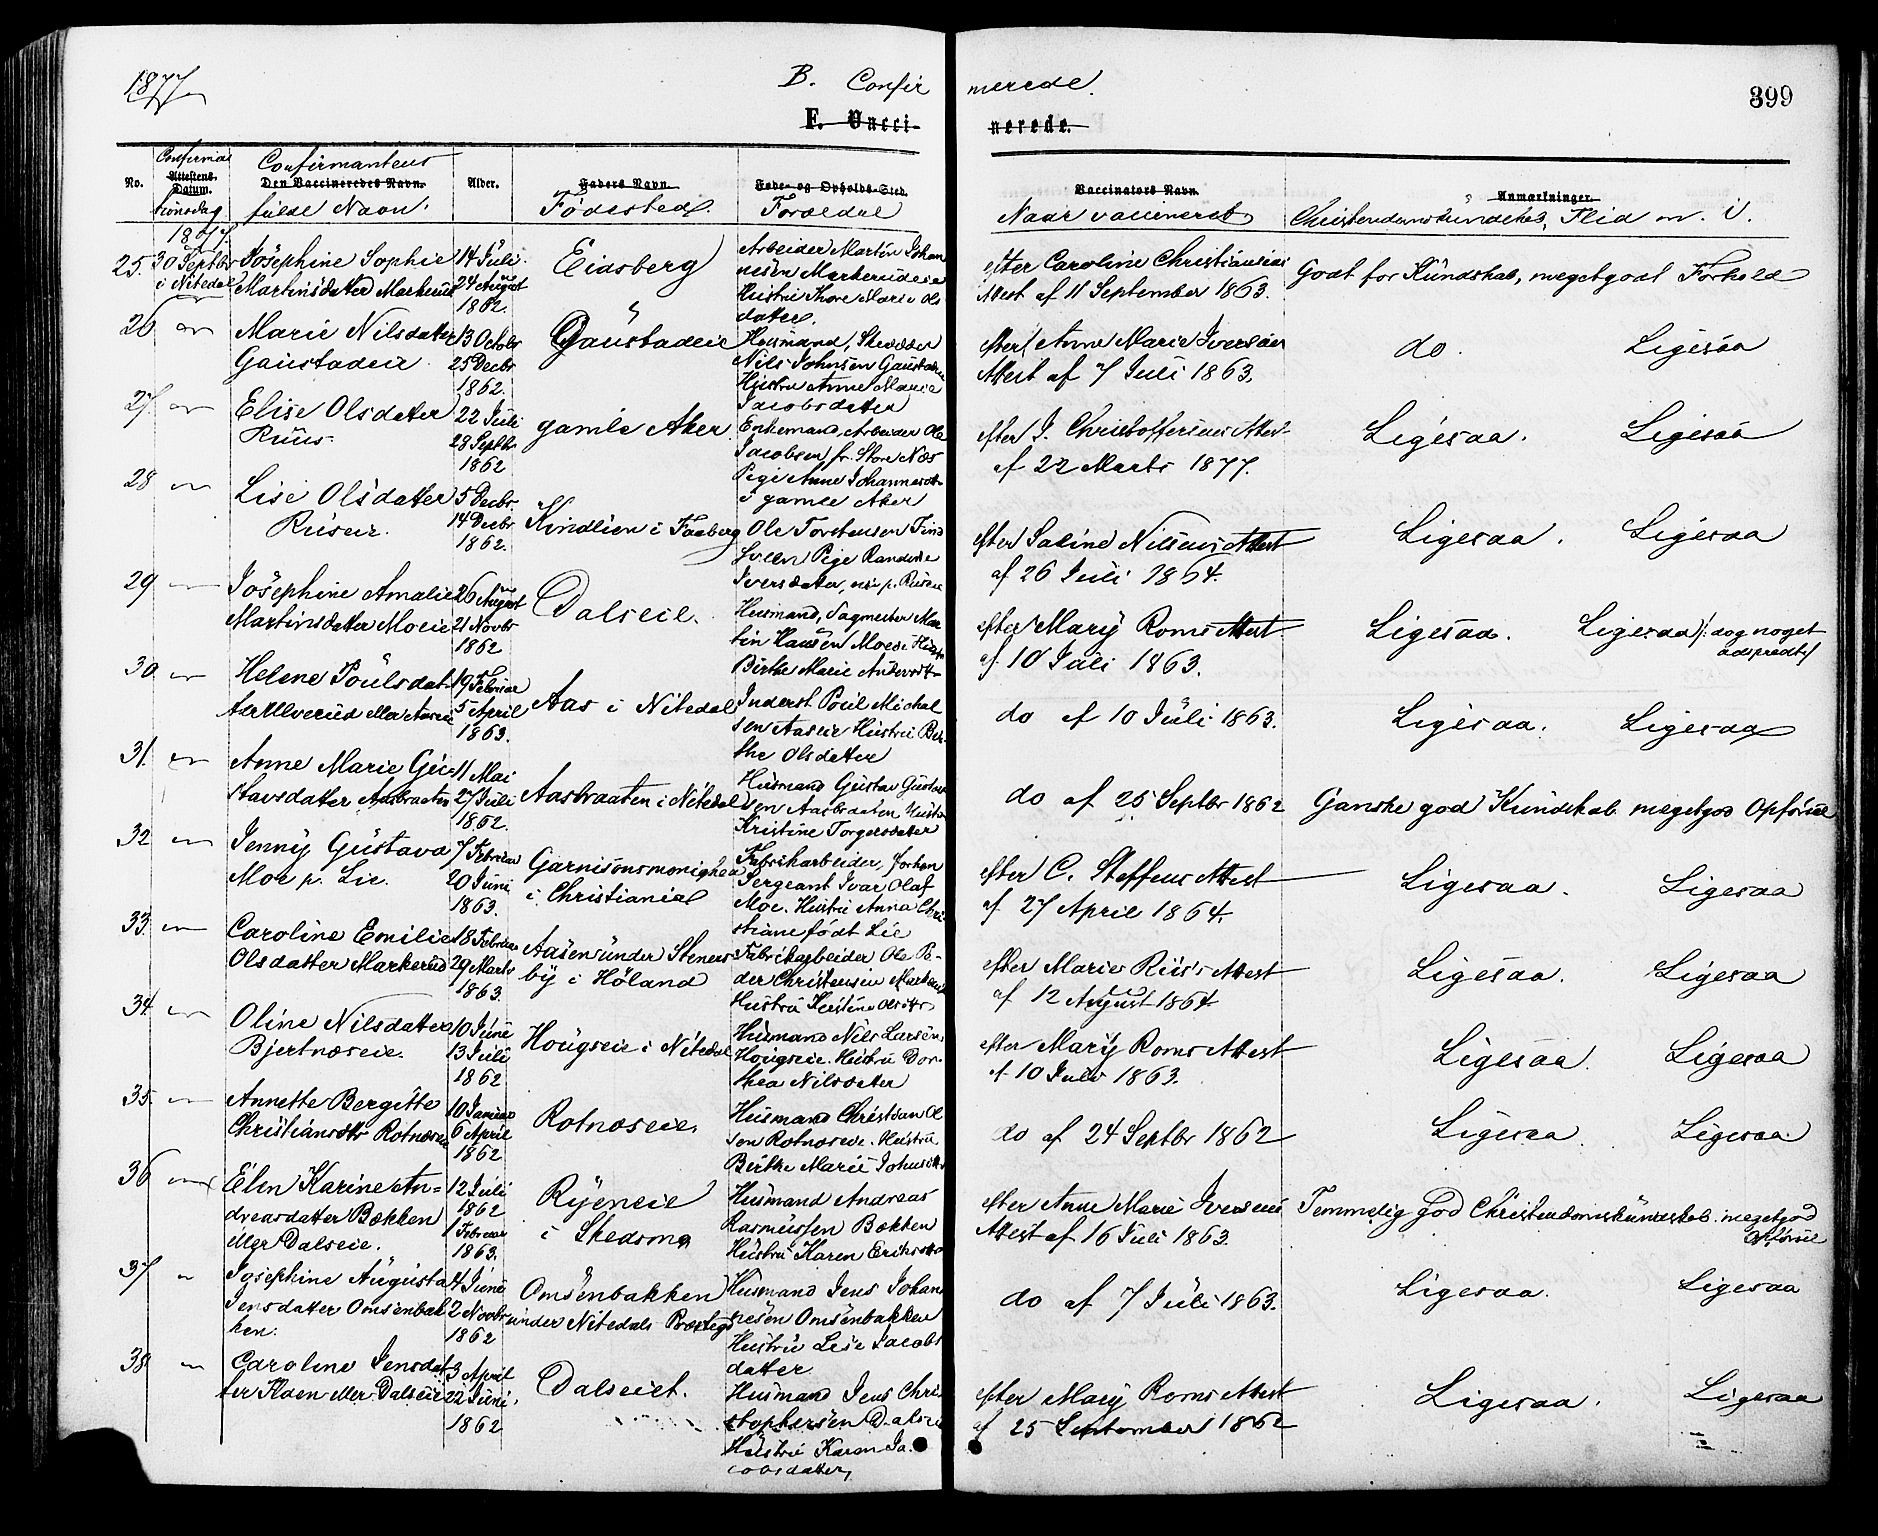 1877
B. Confir merede.
399
F. Vacci- nerede.
No.
Confirma
Attestens Datum.
Confirmantens
Den Vaccineredes Navn.
fulde Navn.
Alder.
Faders Navn.
Fødested.
Føde- og Opholds-Sted.
Forældre
Vaccinators Navn.
Naar vaccineret
Anmærkninger.
Christendomskundskab, Flid m. V.
1877.
25. 30 Septbr i Nitedal
Josephine Sophie
Martinsdatter Markerud
14 Juli
24 August
1862.
Eidsberg
Arbeider Martin Johan
nesen Markerudeie
Hustru Thore Marie Ols
datter.
efter Caroline Christiansens
Attest af 11 September 1863.
Godt for Kundskab, megetgodt Forhold
26
Marie Nilsdatter
Gaustadeie
13 Octobr
25 Decbr
1862.
Gaustadeie
Husmand, Skrædder
Nils Johnsen Gaustadeie
Hustru Anne Marie
Jacobsdatter
efter Anne Marie Iversens
Attest af 7 Juli 1863.
do. Ligesaa
27.
Elise Olsdatter
Ruus
22 Juli
28 Septbr
1862
gamle Aker
Enkemand, Arbeider Ole
Jacobsen fr. Store Næs
Pige Anne Johannesdtr
i gamle Aker
efter J. Christoffersens Attest
af 22 Marts 1877.
Ligesaa. Ligesaa
28
Lise Olsdatter
Ruseie.
5 Decbr.
14 Decbr.
1862.
Kindlien i Faaberg
Ole Torstensen Find
Iversdatter, nu p. Ruseie
efter Sabine Nilsens Attest
af 26 Juli 1864.
Ligesaa. Ligesaa
29
Josephine Amalie
Martinsdatter Moeie
26 August
21 Novbr
1862
Dalseie.
Husmand, Sagmester Mar
tin Hansen Moeie Hustru
Birthe Marie Andersdtr
efter Mary Roms Attest
af 10 Juli 1863.
Ligesaa. Ligesaa /: dog noget
adspredt :/
30
Helene Poulsdat-
ter Ulverud eller Aaseie
19 Februar
5 April
1863.
Aas i Nitedal
Inderst Poul Michel
sen Aaseie Hustru Ber-
the Olsdatter
do af 10 Juli 1863.
Ligesaa. Ligesaa
31.
Anne Marie Gu-
stavsdatter Aasbraaten
11 Mai
27 Juli
1862.
Aasbraaten i Nitedal
Husmand Gustav Gustav
sen Aasbraaten Hustru
Kristine Torgersdatter
do af 25 Septbr 1862
Ganske god Kundskab. megetgod Opførsel
32
Jenny Gustava
Moe p. Lie.
7 Februar
20 Juni
1863.
Garnisonsmenighed
i Christiania
Fabrikarbeider, forhen
Sergeant Ivar Olaf
Moe. Hustru Anna Chri
stiane født Lie
efter C. Steffens Attest
af 27 April 1864.
Ligesaa. Ligesaa
33.
Caroline Emilie
Olsdatter Markerud
18 Februar
29 Marts
1863.
Aasen under Steners
by i Høland
Fabrikarbeider Ole Pe-
der Christensen Markerud
Hustru Kristine Olsdtr.
efter Marie Riis's Attest
af 12 August 1864.
Ligesaa. Ligesaa
34.
Oline Nilsdatter
Bjertnæseie.
10 Juni
13 Juli
1862
Hougseie i Nitedal
Husmand Nils Larsen
Hougseie. Hustru Dor-
thea Nilsdatter
efter Mary Roms Attest
af 10 Juli 1863.
Ligesaa. Ligesaa
35.
Annette Bergitte
Christiansdtr Rotnæseie
10 Januar
6 April
1862
Rotnæseie.
Husmand Christian Ol
sen Rotnæseie. Hustru
Birthe Marie Johnsdtr
do af 24 Septbr 1862
Ligesaa. Ligesaa.
36
Elen Karine An-
dreasdatter Bækken
eller Dalseie.
12 Juli
1862
1 Februar
1863.
Ryeneie
i Skedsmo
Husmand Andreas
Rasmussen Bækken
Hustru Karen Eriksdtr
efter Anne Marie Iversens
Attest af 16 Juli 1863.
Temmelig god Christendomskundskab. megetgod
Opførsel
37
Josephine Augusta
Jensdatter Omsenbak
ken.
4 Juni
2 Novbr
1862
Omsenbakken
under Nitedals Præstegd
Husmand Jens Johan
nesen Omsenbakken
Hustru Lise Jacobs
datter
do af 7 Juli 1863.
Ligesaa. Ligesaa
38
Caroline Jensdat
ter Haen eller Dalseie
3 April
22 Juni.
1862
Dalseiet.
Husmand Jens Chri
stophersen Dalseie
Hustru Karen Ja-
cobsdatter,
efter Mary Roms Attest
af 25 September 1862
Ligesaa. Ligesaa